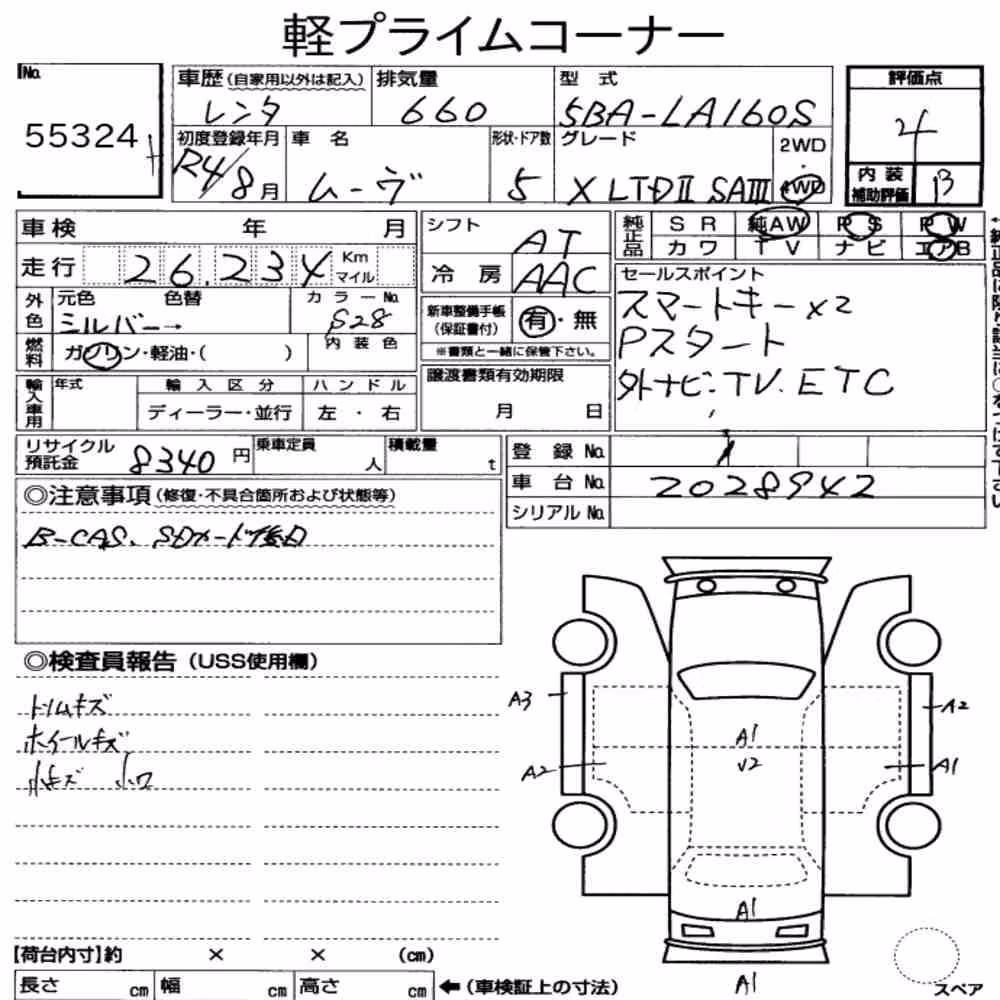 軽プライムコーナー
No.
55324
車歴(自家用以外は記入)
レンタ
排気量
660
型 式
5BA-LA160S
評価点
4
初度登録年月
R4/8月
車 名
ムーヴ
形状・ドア数
5
グレード
X LTDⅡ SAⅢ
2WD
・
4WD
内 装
補助評価
B
車検 年 月
走行 26,234 Km
マイル
シフト AT
冷 房 AAC
純正品
S R 純AW P S P W
カ ワ T V ナ ビ エアB
外色
元色 色替
シルバー→
カラーNo.
S28
燃料
ガソリン・軽油・( )
内 装 色
新車整備手帳
(保証書付)
有・無
※書類と一緒に保管下さい。
セールスポイント
スマートキーx2
Pスタート
外ナビ.TV.ETC
輸入車用
年式
輸 入 区 分
ディーラー・並行
ハ ン ド ル
左 ・ 右
譲渡書類有効期限
月 日
リサイクル
預託金
8340円
乗車定員
人
積載量
t
登 録 No.
車 台 No. 2028942
シリアル No.
◎注意事項(修復・不具合箇所および状態等)
B-CAS、SDカード後日
◎検査員報告(USS使用欄)
トリムキズ
ホイールキズ
小キズ 小ワ
A3
A2
A2
A1
A1
V2
A1
A1
【荷台内寸】約 × × (cm)
長さ cm 幅 cm 高さ cm ←(車検証上の寸法)
スペア